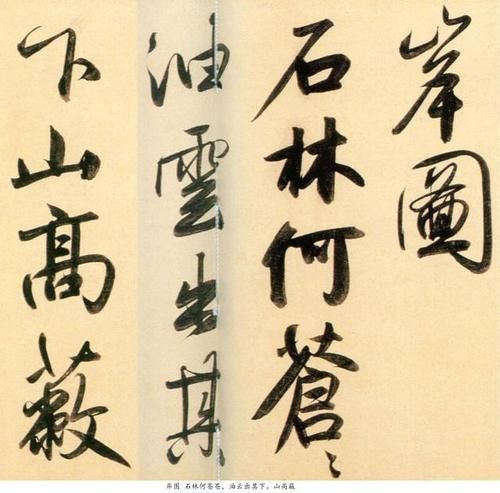 岸圖
石林何蒼〻
油雲出其
下山高蔽
岸图 石林何苍苍，油云出其下。山高蔽